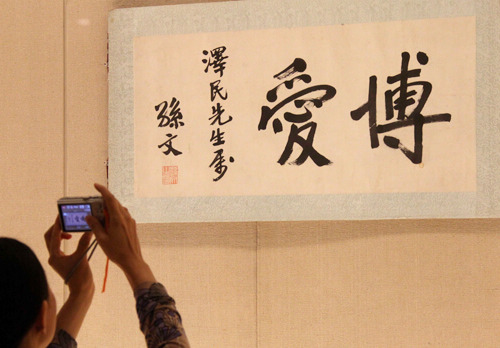 博愛
澤民先生属
孫文